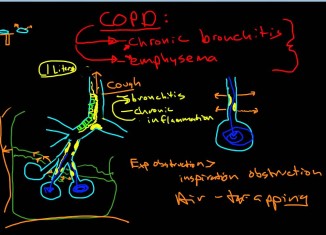 COPD:
chronic bronchitis
emphysema
1 Liter
Cough
bronchitis
chronic
inflammation
Exp obstruction >
inspiration obstruction
Air-trapping